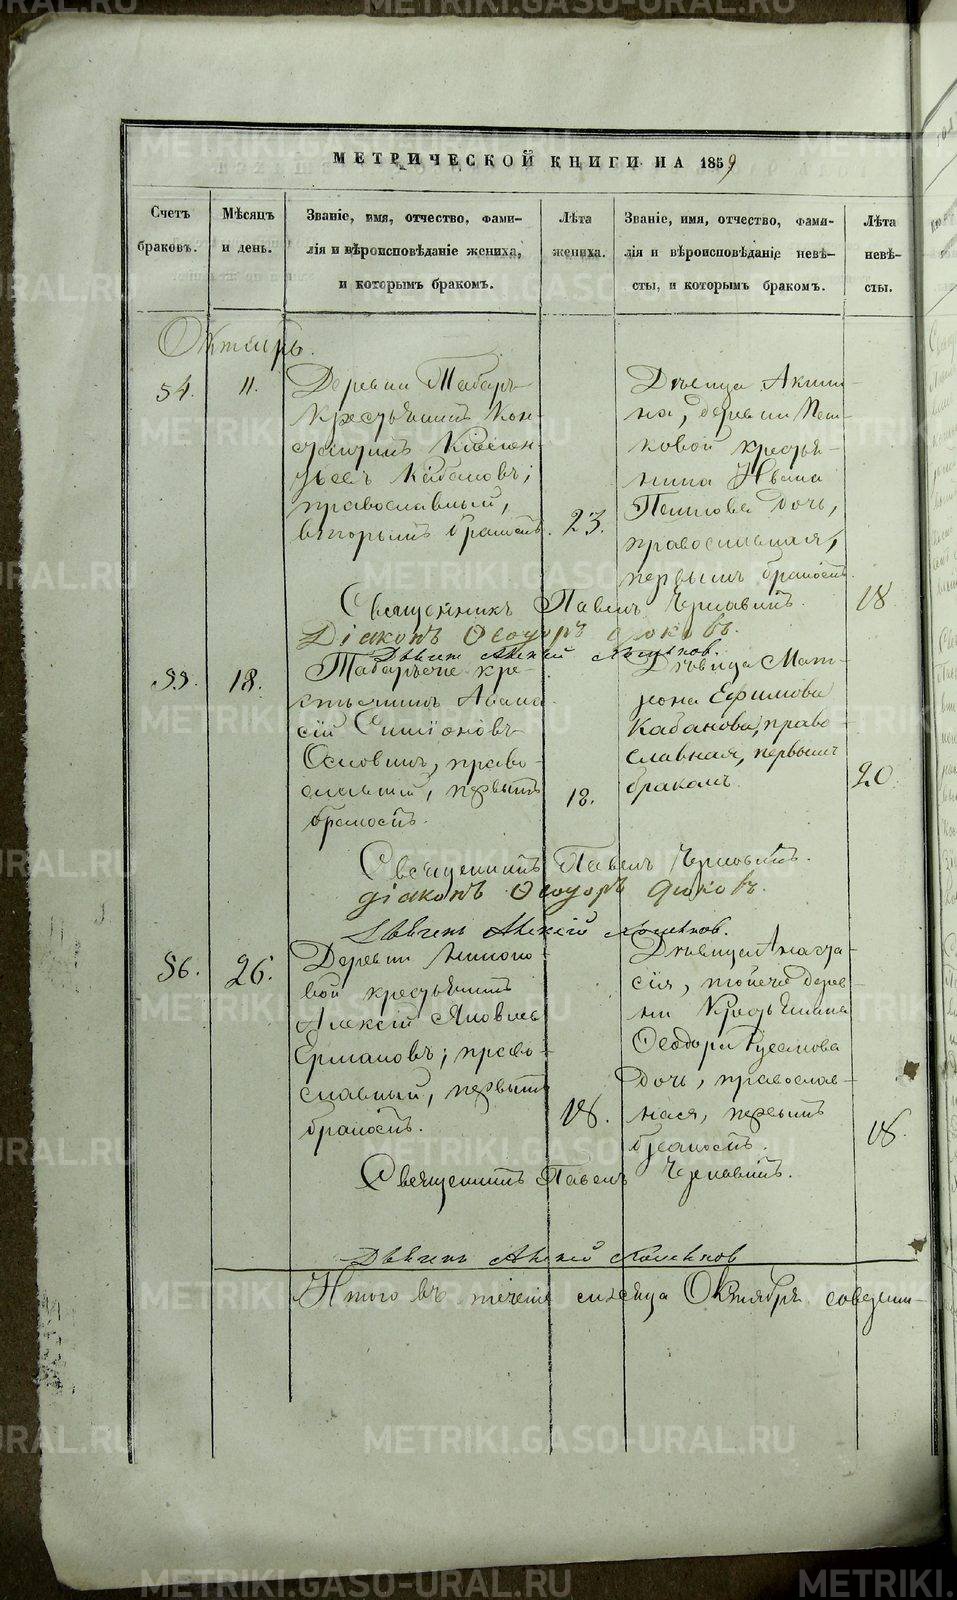 МЕТРИЧЕСКОЙ КНИГИ НА 1859
Счетъ браковъ.
Мѣсяцъ и день.
Званіе, имя, отчество, фами-
лія и вѣроисповѣданіе жениха,
и которымъ бракомъ.
Лѣта жениха.
Званіе, имя, отчество, фами-
лія и вѣроисповѣданіе невѣ-
сты, и которымъ бракомъ.
Лѣта невѣ-
сты.
Октябрь.
54.
11.
Деревни Табаръ
крестьянинъ
Кабановъ;
православный,
вторымъ бракомъ.
23.
Дѣвица Акили-
на, деревни
ковой крестья-
нина Ивана
дочь,
православная,
первымъ бракомъ.
18
Священникъ Павелъ Чернавинъ.
Діаконъ Ѳеодоръ
Дьячекъ Алексій
55.
18.
кре-
стьянинъ Аѳана-
сій Симіоновъ
право-
славный, первымъ
бракомъ.
18.
Дѣвица Мат-
рона Ефимова
Кабанова, право-
славная, первымъ
бракомъ.
20.
Священникъ Павелъ Чернавинъ.
Діаконъ Ѳеодоръ
Дьячекъ Алексій
56.
26.
Деревни
вой крестьянинъ
Алексій Яковлевъ
Ермаковъ; право-
славный, первымъ
бракомъ.
18.
Дѣвица Анаста-
сія, тойже дерев-
ни крестьянина
Ѳеодора Русанова
дочь, православ-
ная, первымъ
бракомъ.
18.
Священникъ Павелъ Чернавинъ.
Дьячекъ Алексій
Итого въ теченіе мѣсяца Октября
METRIKI.GASO-URAL.RU